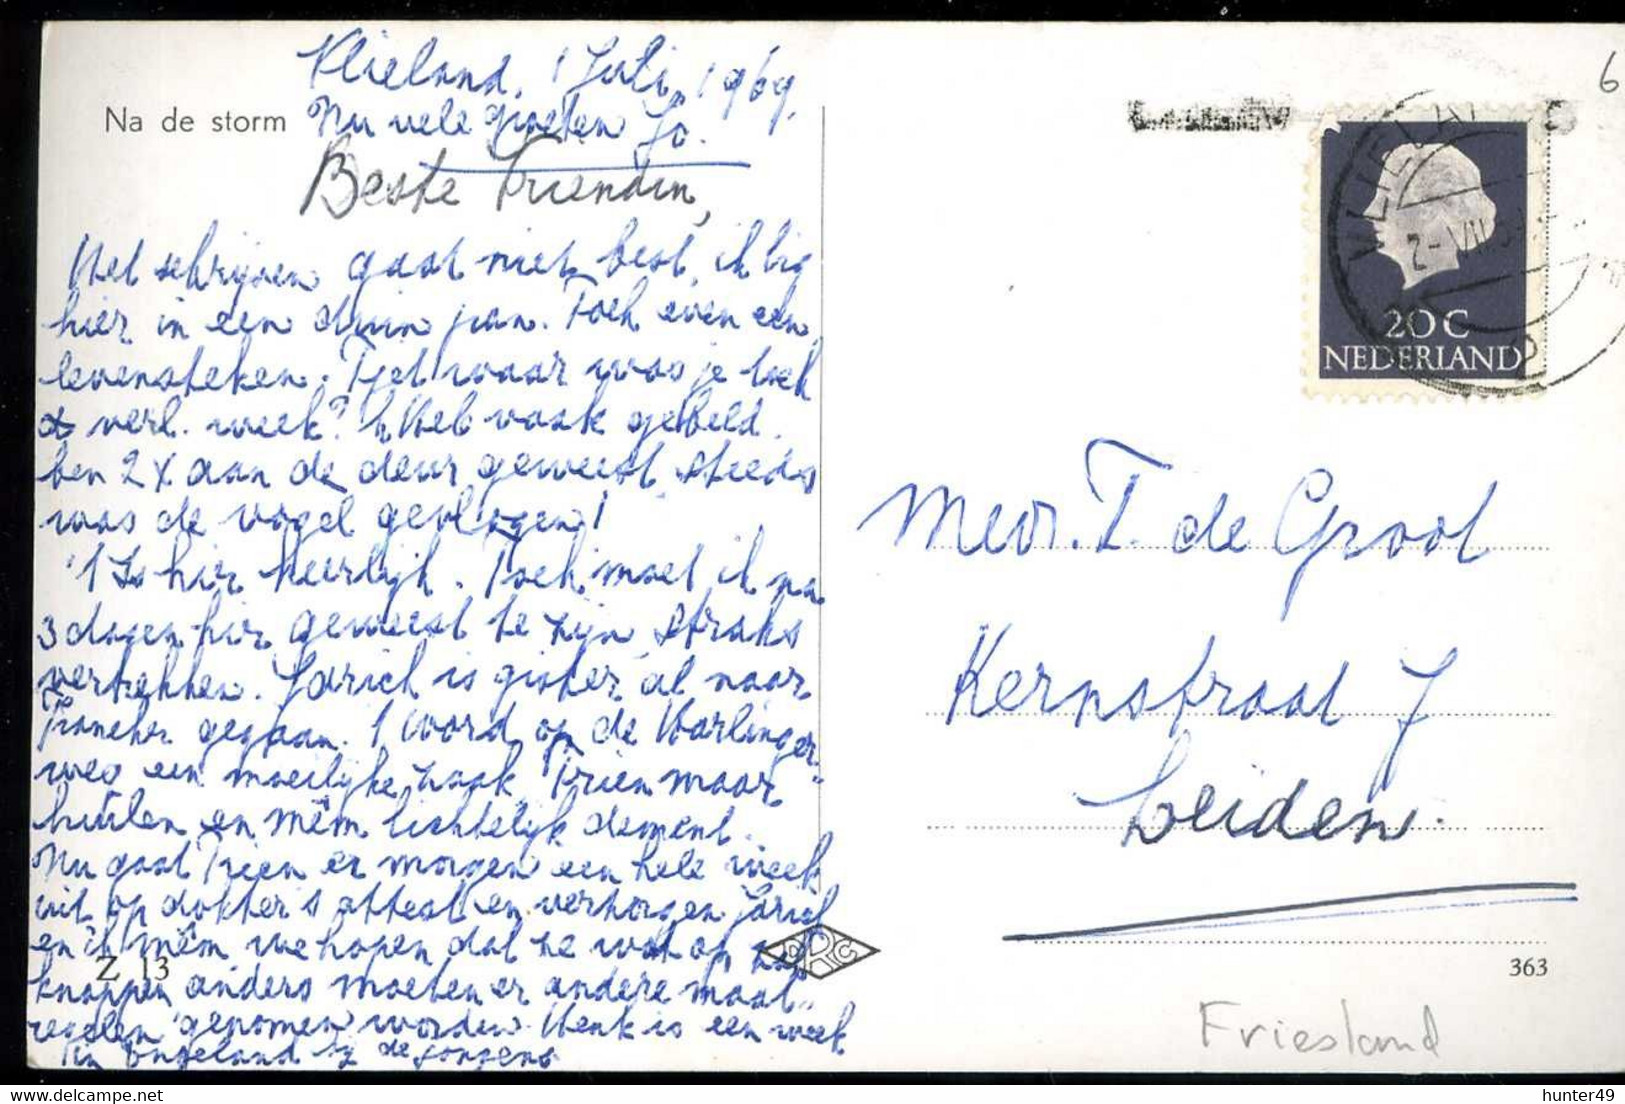 Na de storm
Vlieland, 1 Juli 1969.
Nu vele groeten Jo.
Beste Vriendin,
Het schrijven gaat niet best, ik lig
hier in een duin pan. Toch even een
levensteken. Tjet waar was je toch
verl. week? Heb vaak gebeld.
ben 2 x aan de deur geweest steeds
was de vogel gevlogen!
't Is hier heerlijk. Toch moet ik na
3 dagen hier geweest te zijn straks
vertrekken. Jorich is gister al naar
Franeker gegaan. 't word op de Harlinger-
weg een moeilijke zaak Trien maar
huilen en Mêm lichtelijk dement.
Nu gaat Trien er morgen een hele week
uit op dokter's attest en verzorgen Jorich
en ik mêm we hopen dat ze wat op zal
knappen anders moeten er andere maat-
regelen genomen worden. Henk is een week
in Engeland bij de jongens
Z 13
RC
VLIELAND
2-VII
20 C
NEDERLAND
Mevr. T. de Groot
Kernstraat 7
Leiden.
363
Friesland
6
hunter49